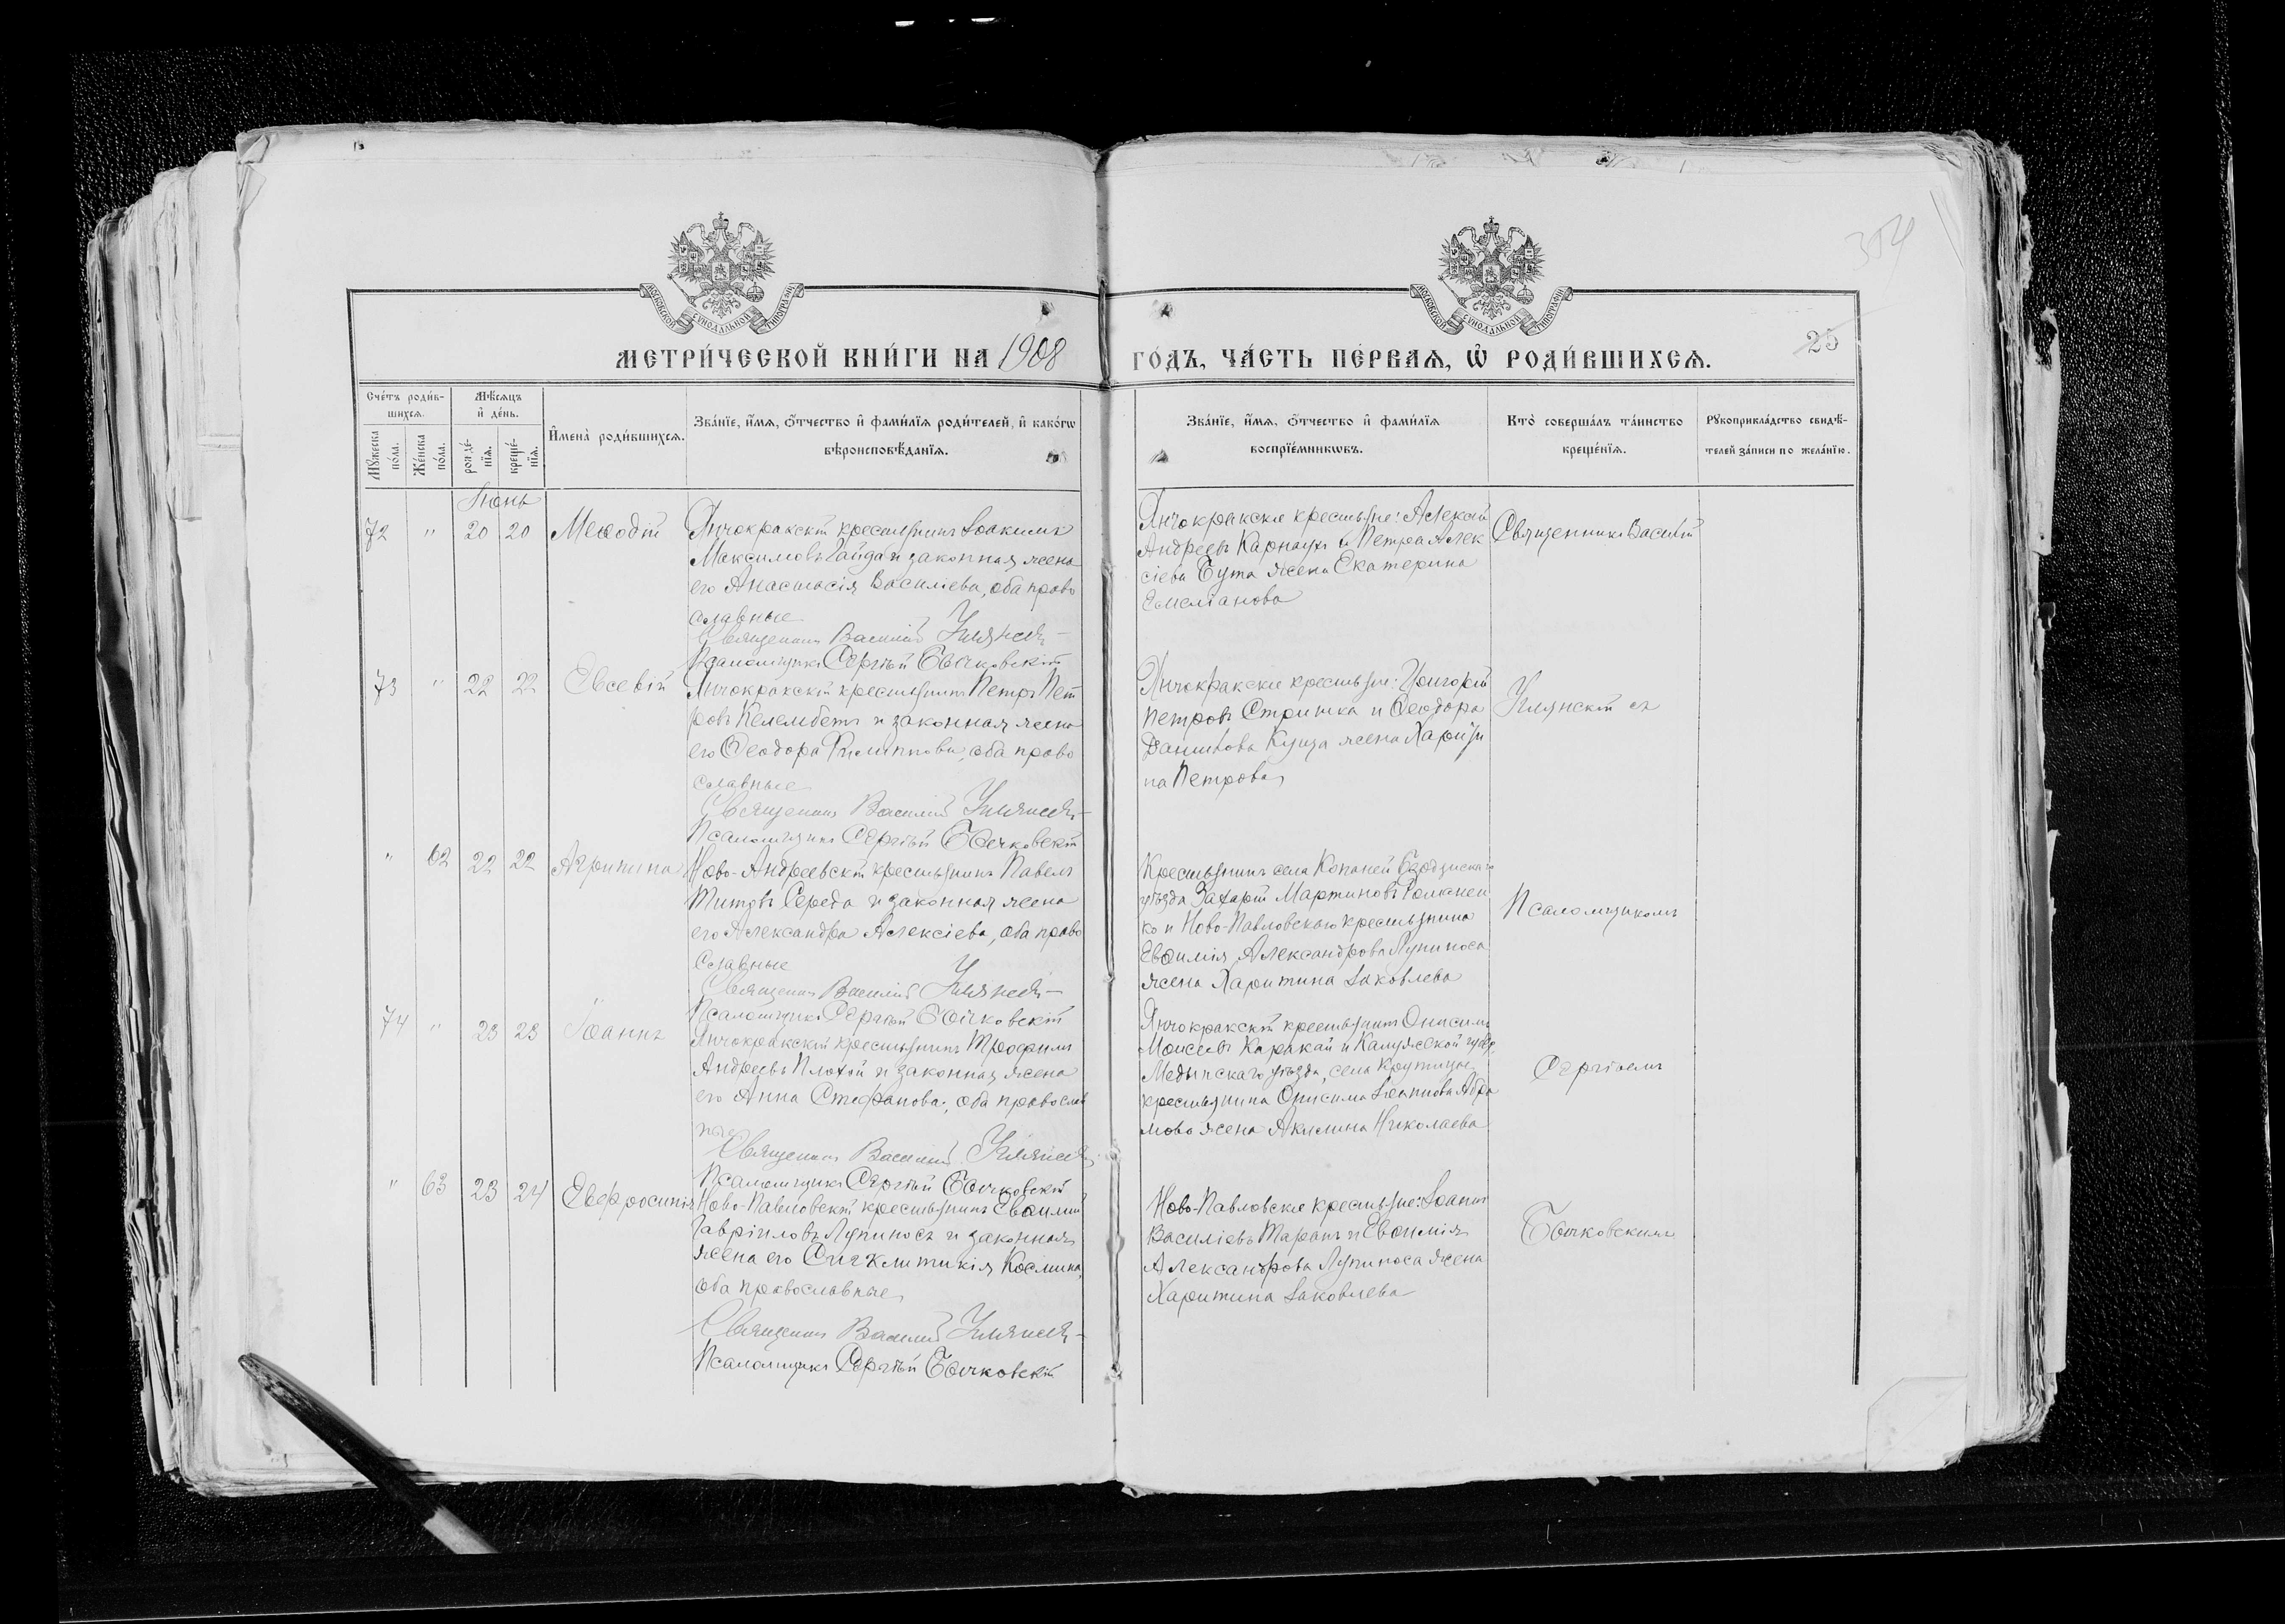 304
МОСКОВСКОЙ СѴНОДАЛЬНОЙ ТИПОГРАФІИ
МОСКОВСКОЙ СѴНОДАЛЬНОЙ ТИПОГРАФІИ
25
МЕТРИ́ЧЕСКОЙ КНИ́ГИ НА 1908 ГО́ДЪ, ЧА́СТЬ ПЕ́РВАѦ, Ѡ҆ РОДИ́ВШИХСѦ.
Сче́тъ роди́в-
шихсѧ.
Мꙋ́жеска по́ла.
Же́нска по́ла.
Мѣ́сѧцъ
и҆ де́нь.
рожде́-
нїѧ.
креще́-
нїѧ.
И҆мена̀ роди́вшихсѧ.
Зва́нїе, и҆́мѧ, ѻ҆́тчество и҆ фами́лїѧ роди́телей, и҆ како́гѡ
вѣроисповѣ́данїѧ.
Зва́нїе, и҆́мѧ, ѻ҆́тчество и҆ фами́лїѧ
воспрїе́мникѡвъ.
Кто̀ соверша́лъ та́инство
креще́нїѧ.
Рꙋкоприкла́дство свидѣ́-
телей за́писи по жела́нїю.
Іюнь
72 " 20 20 Меѳодій
Янчокракскій крестьянинъ Іоакимъ
Максимовъ Гайда и законная жена
его Анастасія Василіева, оба право
славные
Священникъ Василій
Псаломщикъ Сергѣй Бычковскій
Янчокракскіе крестьяне: Алексій
Андреевъ Карнаухъ и Петра Алек
сіева Бута жена Екатерина
Емеліанова
Священникъ Василій
73 " 22 22 Евсевій
Янчокракскій крестьянинъ Петръ Пет
ровъ Келембетъ и законная жена
его Ѳеодора Филиппова, оба право
славные
Священникъ Василій
Псаломщикъ Сергѣй Бычковскій
Янчокракскіе крестьяне: Григорій
Петровъ Стрижка и Ѳеодора
Даниилова Куцза жена Харити
на Петрова
съ
" 62 22 22 Агрипина
Ново-Андреевскій крестьянинъ Павелъ
Титовъ Середа и законная жена
его Александра Алексіева, оба право
славные
Священникъ Василій
Псаломщикъ Сергѣй Бычковскій
Крестьянинъ села Копаней
уѣзда Захарій Мартиновъ Романен
ко и Ново-Павловскаго крестьянина
Евѳимія Александрова Лупиноса
жена Харитина Іаковлева
Псаломщикомъ
74 " 23 23 Іоаннъ
Янчокракскій крестьянинъ Трофимъ
Андреевъ Плохой и законная жена
его Анна Стефанова, оба православ
ные
Священникъ Василій
Псаломщикъ Сергѣй Бычковскій
Янчокракскій крестьянинъ Онисимъ
Моисеевъ Каракай и Калужской губер.
Медынскаго уѣзда, села Крутицы
крестьянина Онисима Іоаннова Абра
мова жена Акилина Николаева
Сергѣемъ
" 63 23 24 Евфросинія
Ново-Павловскій крестьянинъ Евѳимій
Гавріиловъ Лупиносъ и законная
жена его Сигклитикія Космина,
оба православные
Священникъ Василій
Псаломщикъ Сергѣй Бычковскій
Ново-Павловскіе крестьяне: Іоаннъ
Василіевъ Таранъ и Евѳимія
Александрова Лупиноса жена
Харитина Іаковлева
Бычковскимъ